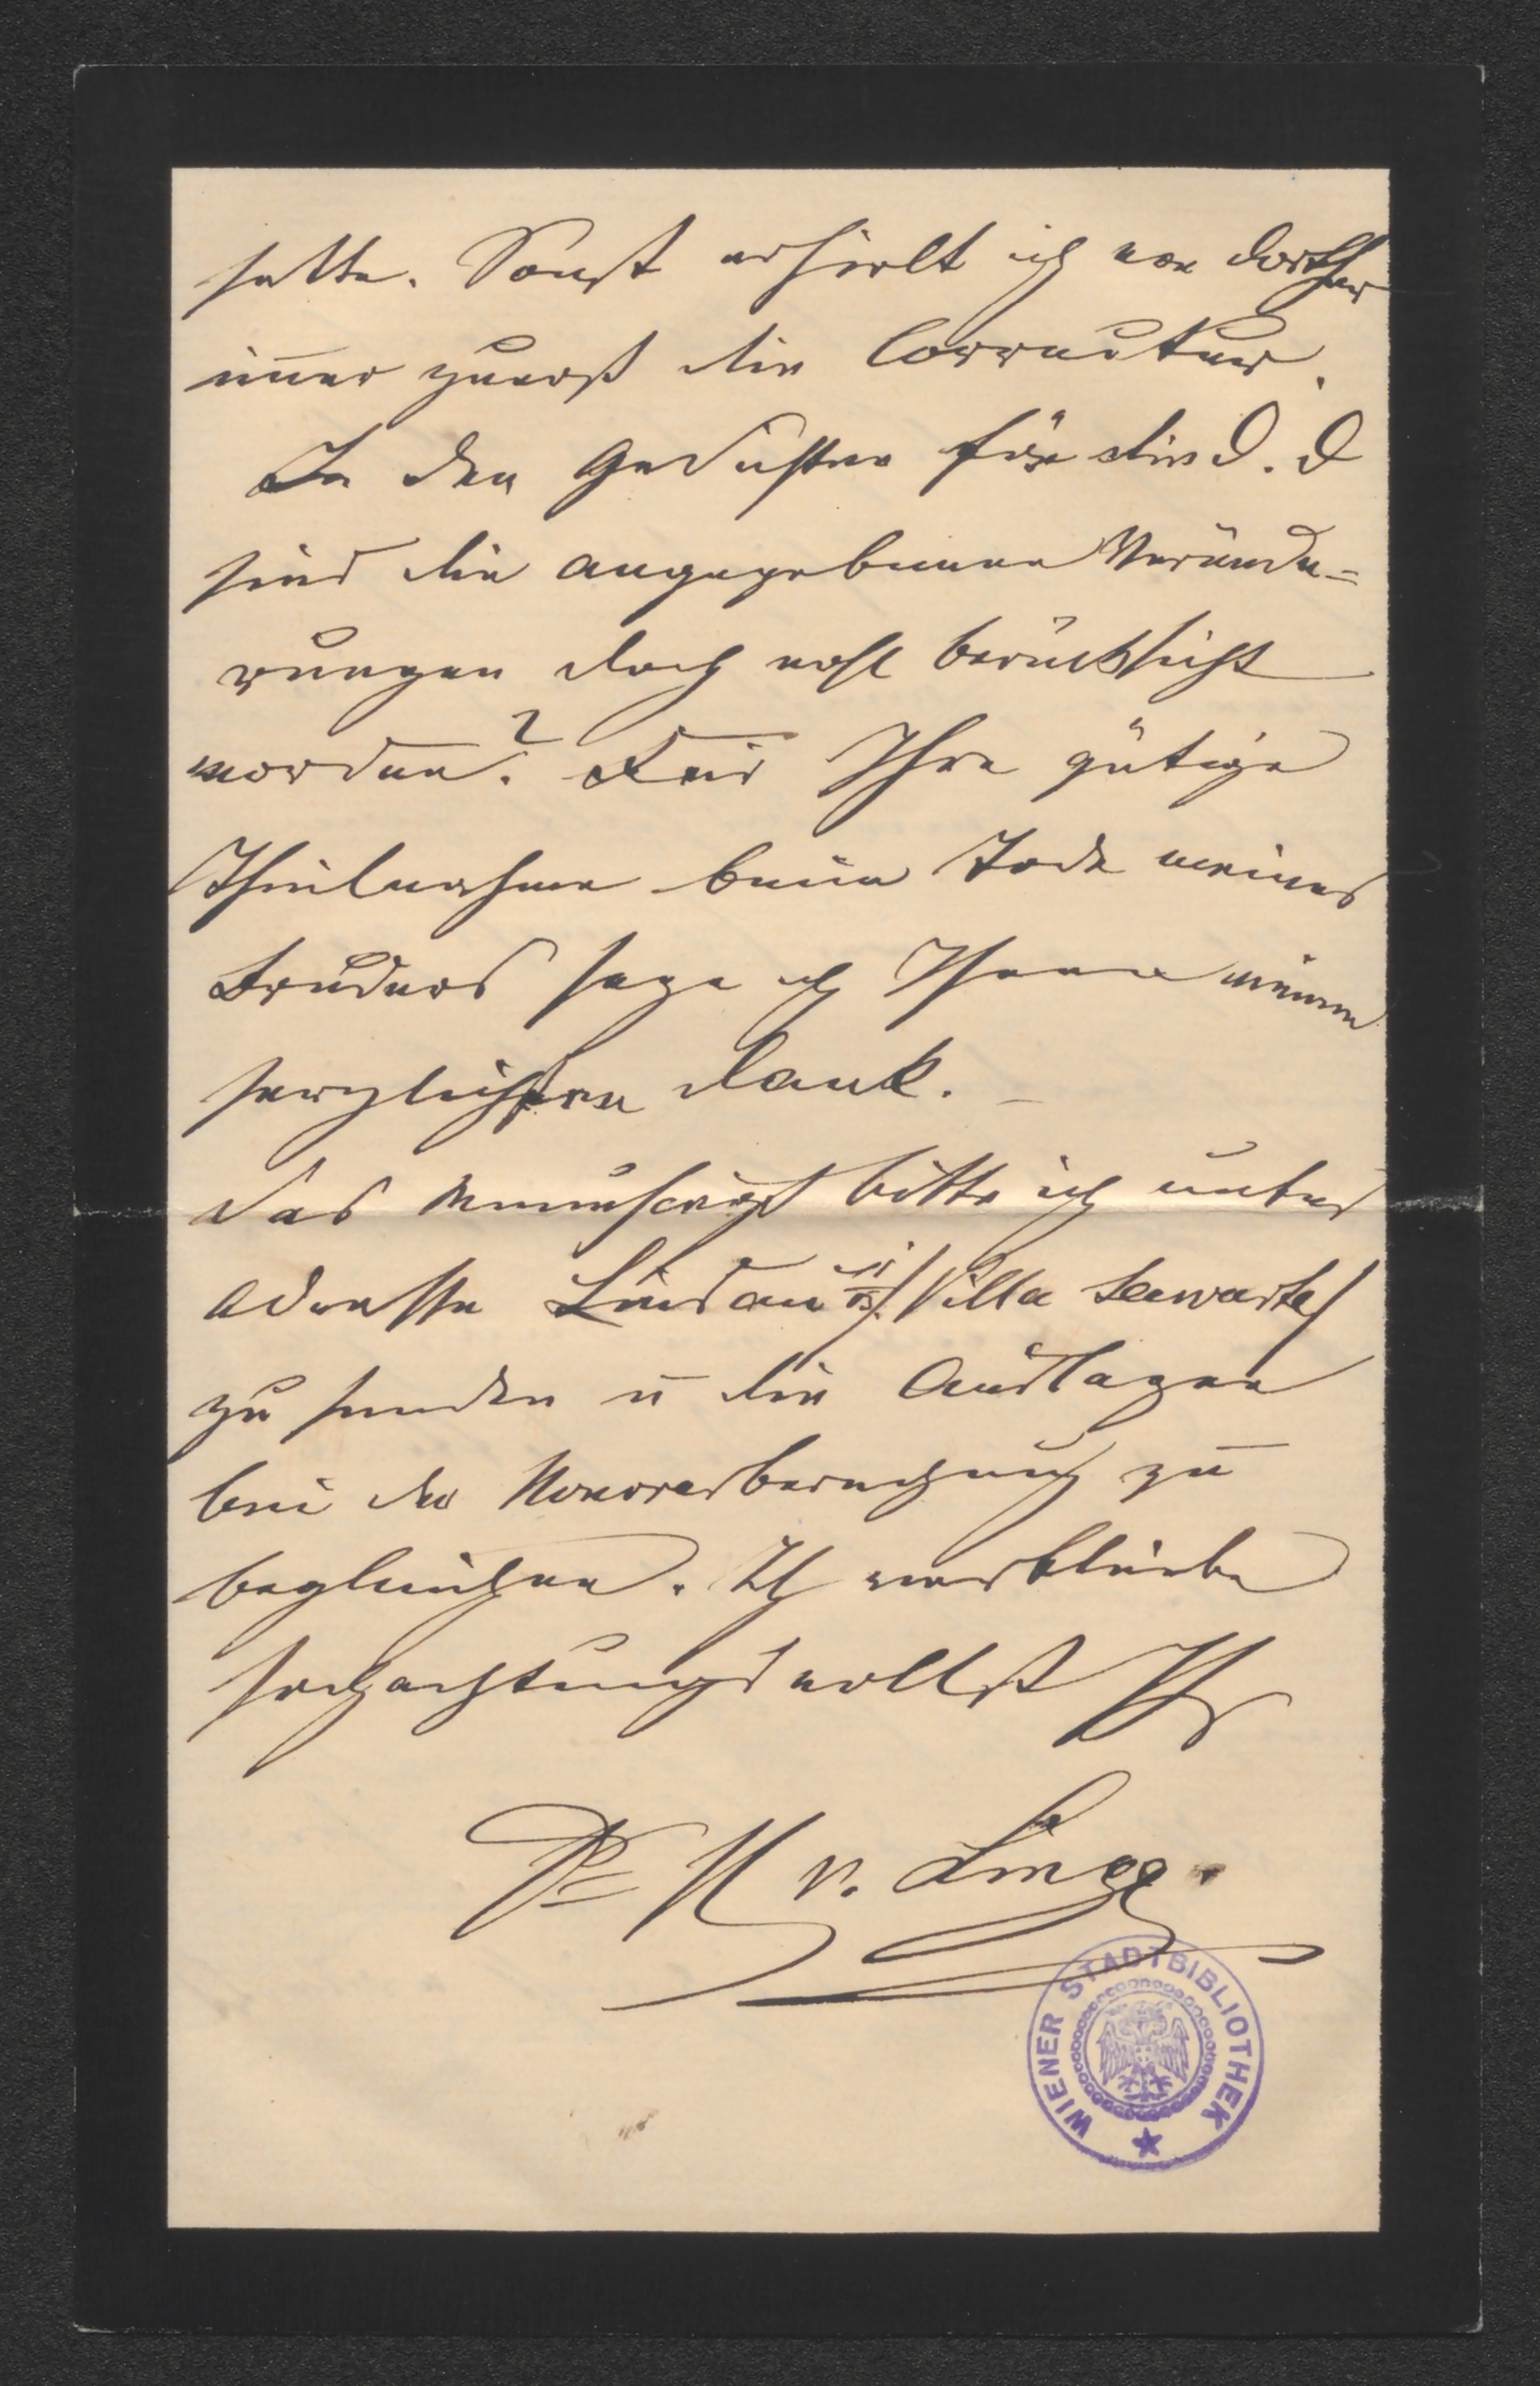 hatte. Sonst erhielt ich von dorther
im̄er zuerst die Correctur.
In den Gedichten für die D. D
sind die angegebenen Verände=
rungen doch wohl berücksicht
worden? Für Ihre gütige
Theilnahme beim Tode meines
Bruders sage ich Ihnen meinen
herzlichsten Dank. –
Das Manuscript bitte ich unter
Adresse Lindau /Villa Seewarte/
zu senden u die Auslagen
bei der Honorarberechnung zu
begleichen. Ich verbleibe
hochachtungsvollst Ihr
Dr H v. Lingg.
WIENER STADTBIBLIOTHEK